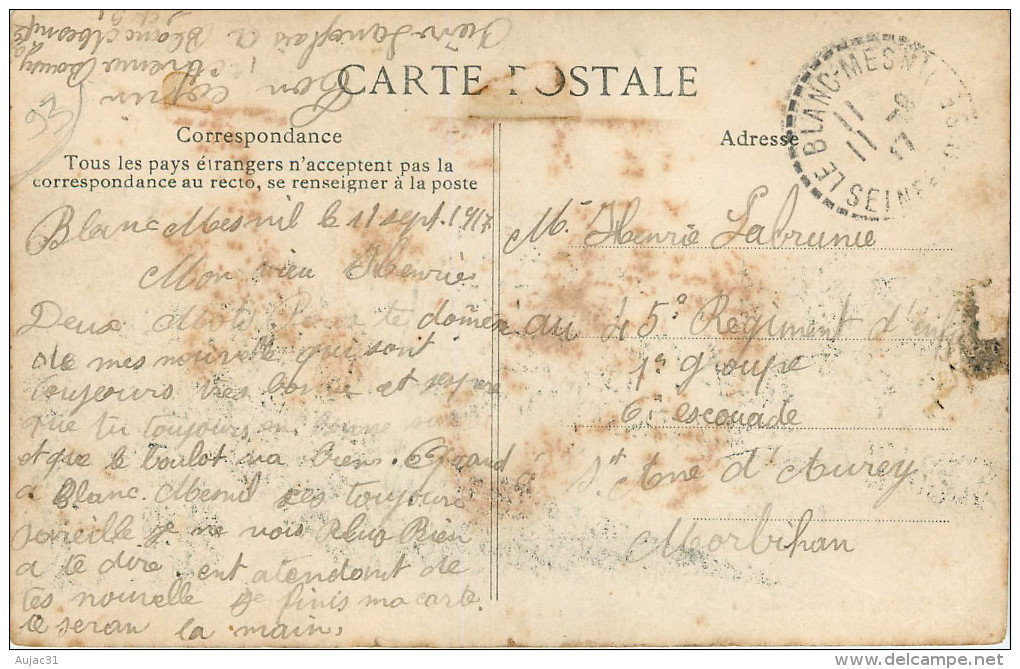 CARTE POSTALE
Correspondance
Tous les pays étrangers n'acceptent pas la
correspondance au recto, se renseigner à la poste
Adresse
LE BLANC-MESNIL
SEINE
11
11
17
Blanc Mesnil le 11 sept. 1917
Mon vieu Henrie
Deux Mots Pour te donner
de mes nouvelle qui sont
toujours tres bonne et espere
que tu toujours en bonne
et que le boulot va bien. Quand
a Blanc. Mesnil ces toujours
pareille je ne vois plus Rien
a te dire. ent atendant de
tes nouvelle je finis ma carte
te seran la main.
Mr Henrie Labrunie
au 45e Regiment d'inf
1e groupe
6e escouade
à St Ane d'Aurey
Morbihan
Ton copin
Blanc Mesnil
Avenue
Aujac31
www.delcampe.net